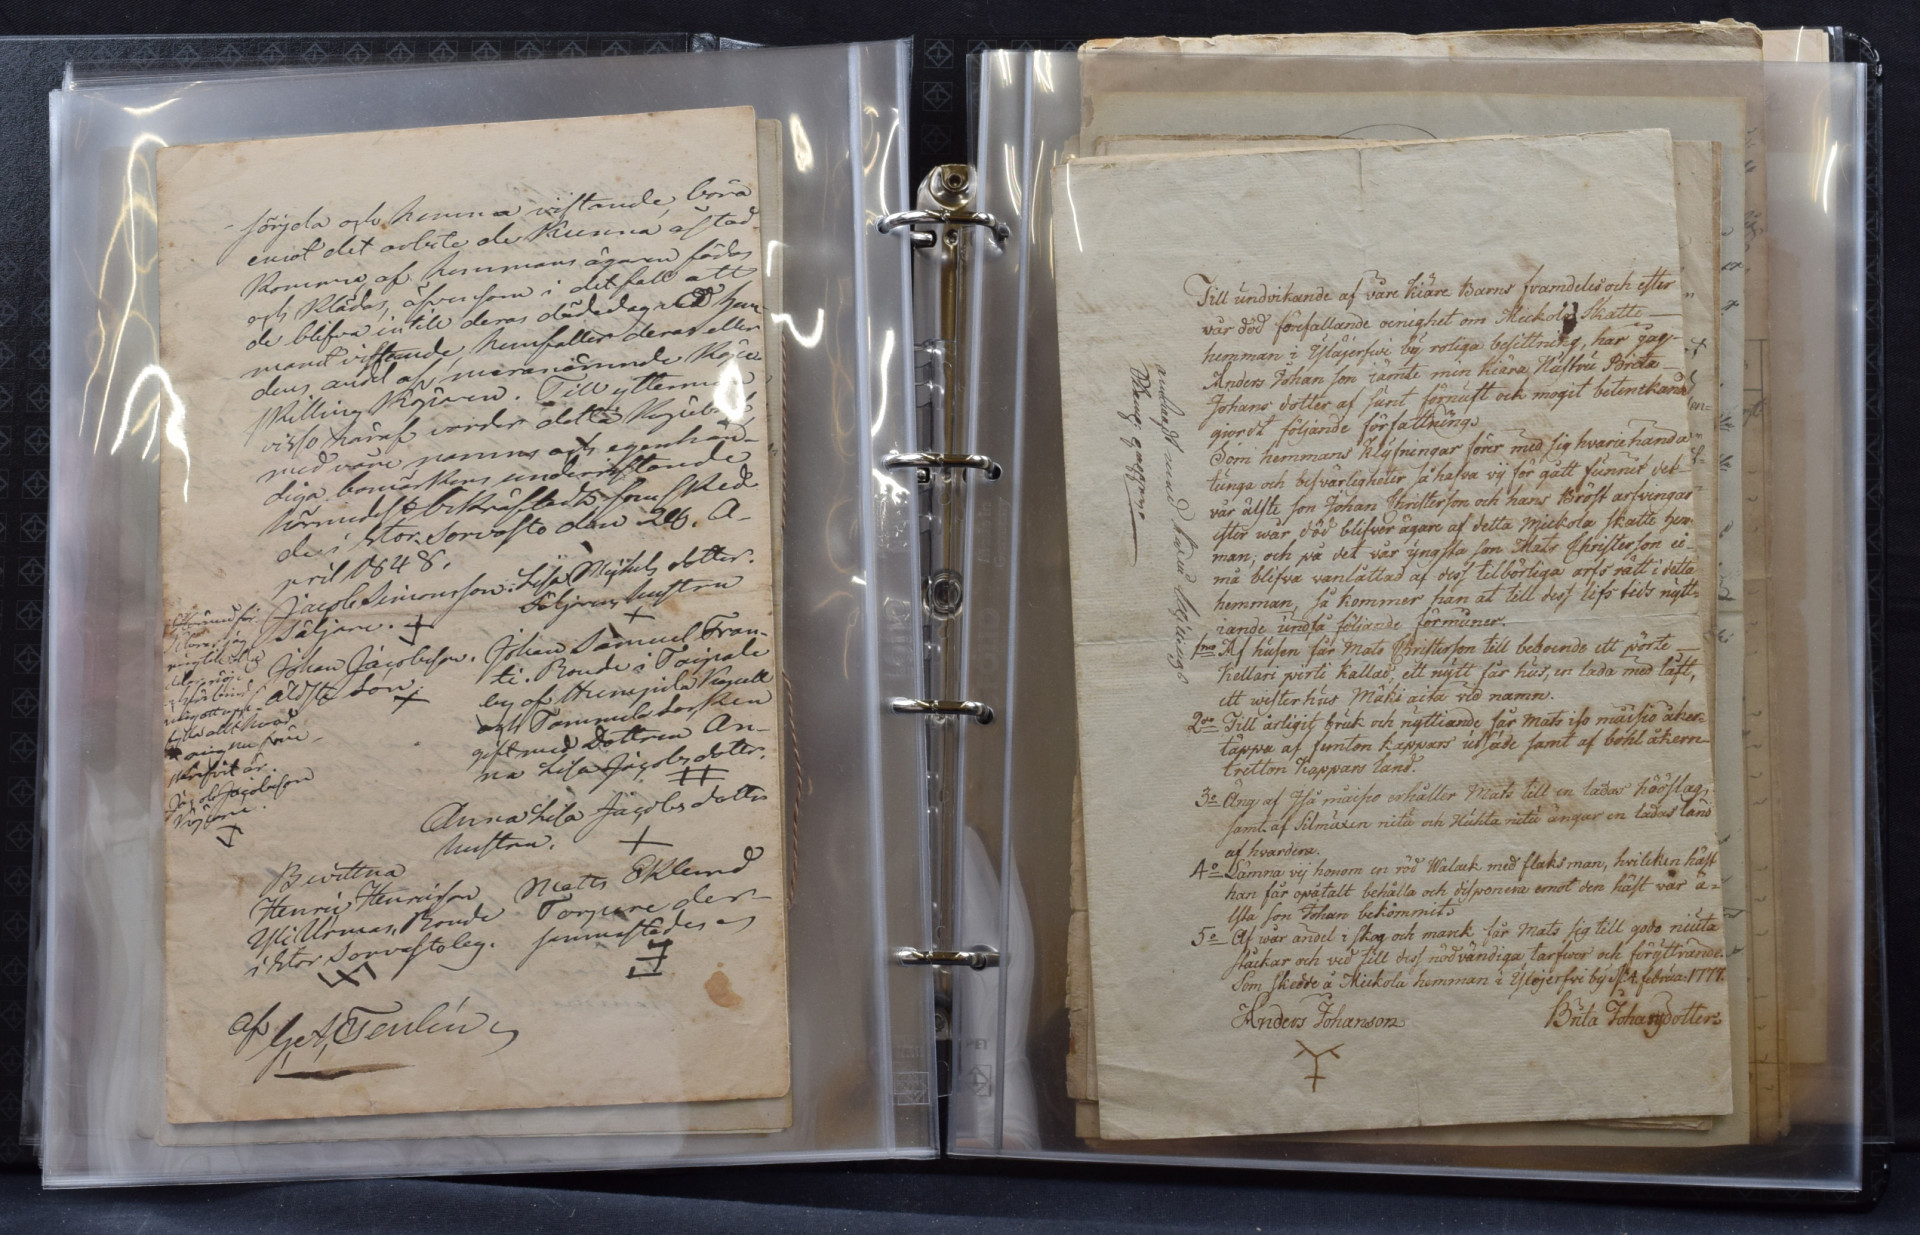 sörjda och hemma vistande, böra
emot det arbete de kunna åstad
komma af hemmans ägaren födas
och klädas, äfvensom i det fall att
de blifva intill deras dödedag vid hem-
manet vistande, hemfaller deras eller
dens andel af meranämnde Köpe
skilling Köparen. Till yttermera
visso häraf varder detta Köpebref
med våre namns och egenhän-
diga bomärkens underristande
härmedelst bekräftadt, som skedde
de i Stor-Sorvasto den 26. A-
pril 1848.
Jacob Simonsson. Lisa Mickels dotter.
Säljare. Säljarens hustru
Johan Jacobsson. Johan Samuel Fran-
äldste son. ti. Bonde i Toipale
by af Hunspila
och Tammela Socken
gift med dottren An-
na Lisa Jacobs dotter.
skrifvit är.
Jacob Jacobsson
Köpare.
Anna Lisa Jacobs dotter
hustru.
Bevittna
Henric Henricson Matts Eklund
Yli Urmas, Bonde Torpare der-
i Stor Sorvasto by. sammastädes
af
Till undvikande af våre kiäre Barns framdeles och efter
vår död förefallande oenighet om Mickola Skatte
hemman i Ylöjerfwi by roliga besittning, har jag
Anders Johan son jämte min kiära Hustru Brita
Johans dotter af sunt förnuft och mogit betenkande
giordt följande författning.
Som hemmans klyfningar förer med sig hvariehanda
tunga och besvärligheter så hafva vij för gått funnit det
vår älste son Johan Christerson och hans Bröst arfvingar
efter wår död blifver ägare af detta Mickola skatte hem
man, och på det vår yngsta son Mats Christerson ei
må blifva vanlåttad af dess tilbörliga arfs rätt i detta
hemman, så kommer han at till dess lifs tids nytt-
iande undfå följande förmåner.
1mo Af husen får Mats Christerson till beboende ett pörte
Kellari pirti kallad, ett nytt får hus, en lada med låft,
ett wisterhus Mäki aita vid namn.
2do Till årligit bruk och nyttiande får Mats iso maisio åker
täppa af femton kappars utsäde samt af bohl åkern
tretton kappars land.
3o Äng af Iså maisio erhåller Mats till en ladas höslag,
samt af Silmuxen nitu och Huhta nitu ängar en ladas land
af hvardera.
4o Lämna vij honom en röd Walack med flaksman, hvilcken häst
han får opåtalt behålla och disponera emot den häst vår ä-
lsta son Johan bekommit.
5o Af wår andel i skog och marck får Mats sig till godo niuta
stäckar och ved till dess nödvändiga tarfwor och föryttrande.
Som skedde å Mickola hemman i Ylöjerfvi by d. 4. februa: 1777.
Anders Johanson Brita Johansdotter